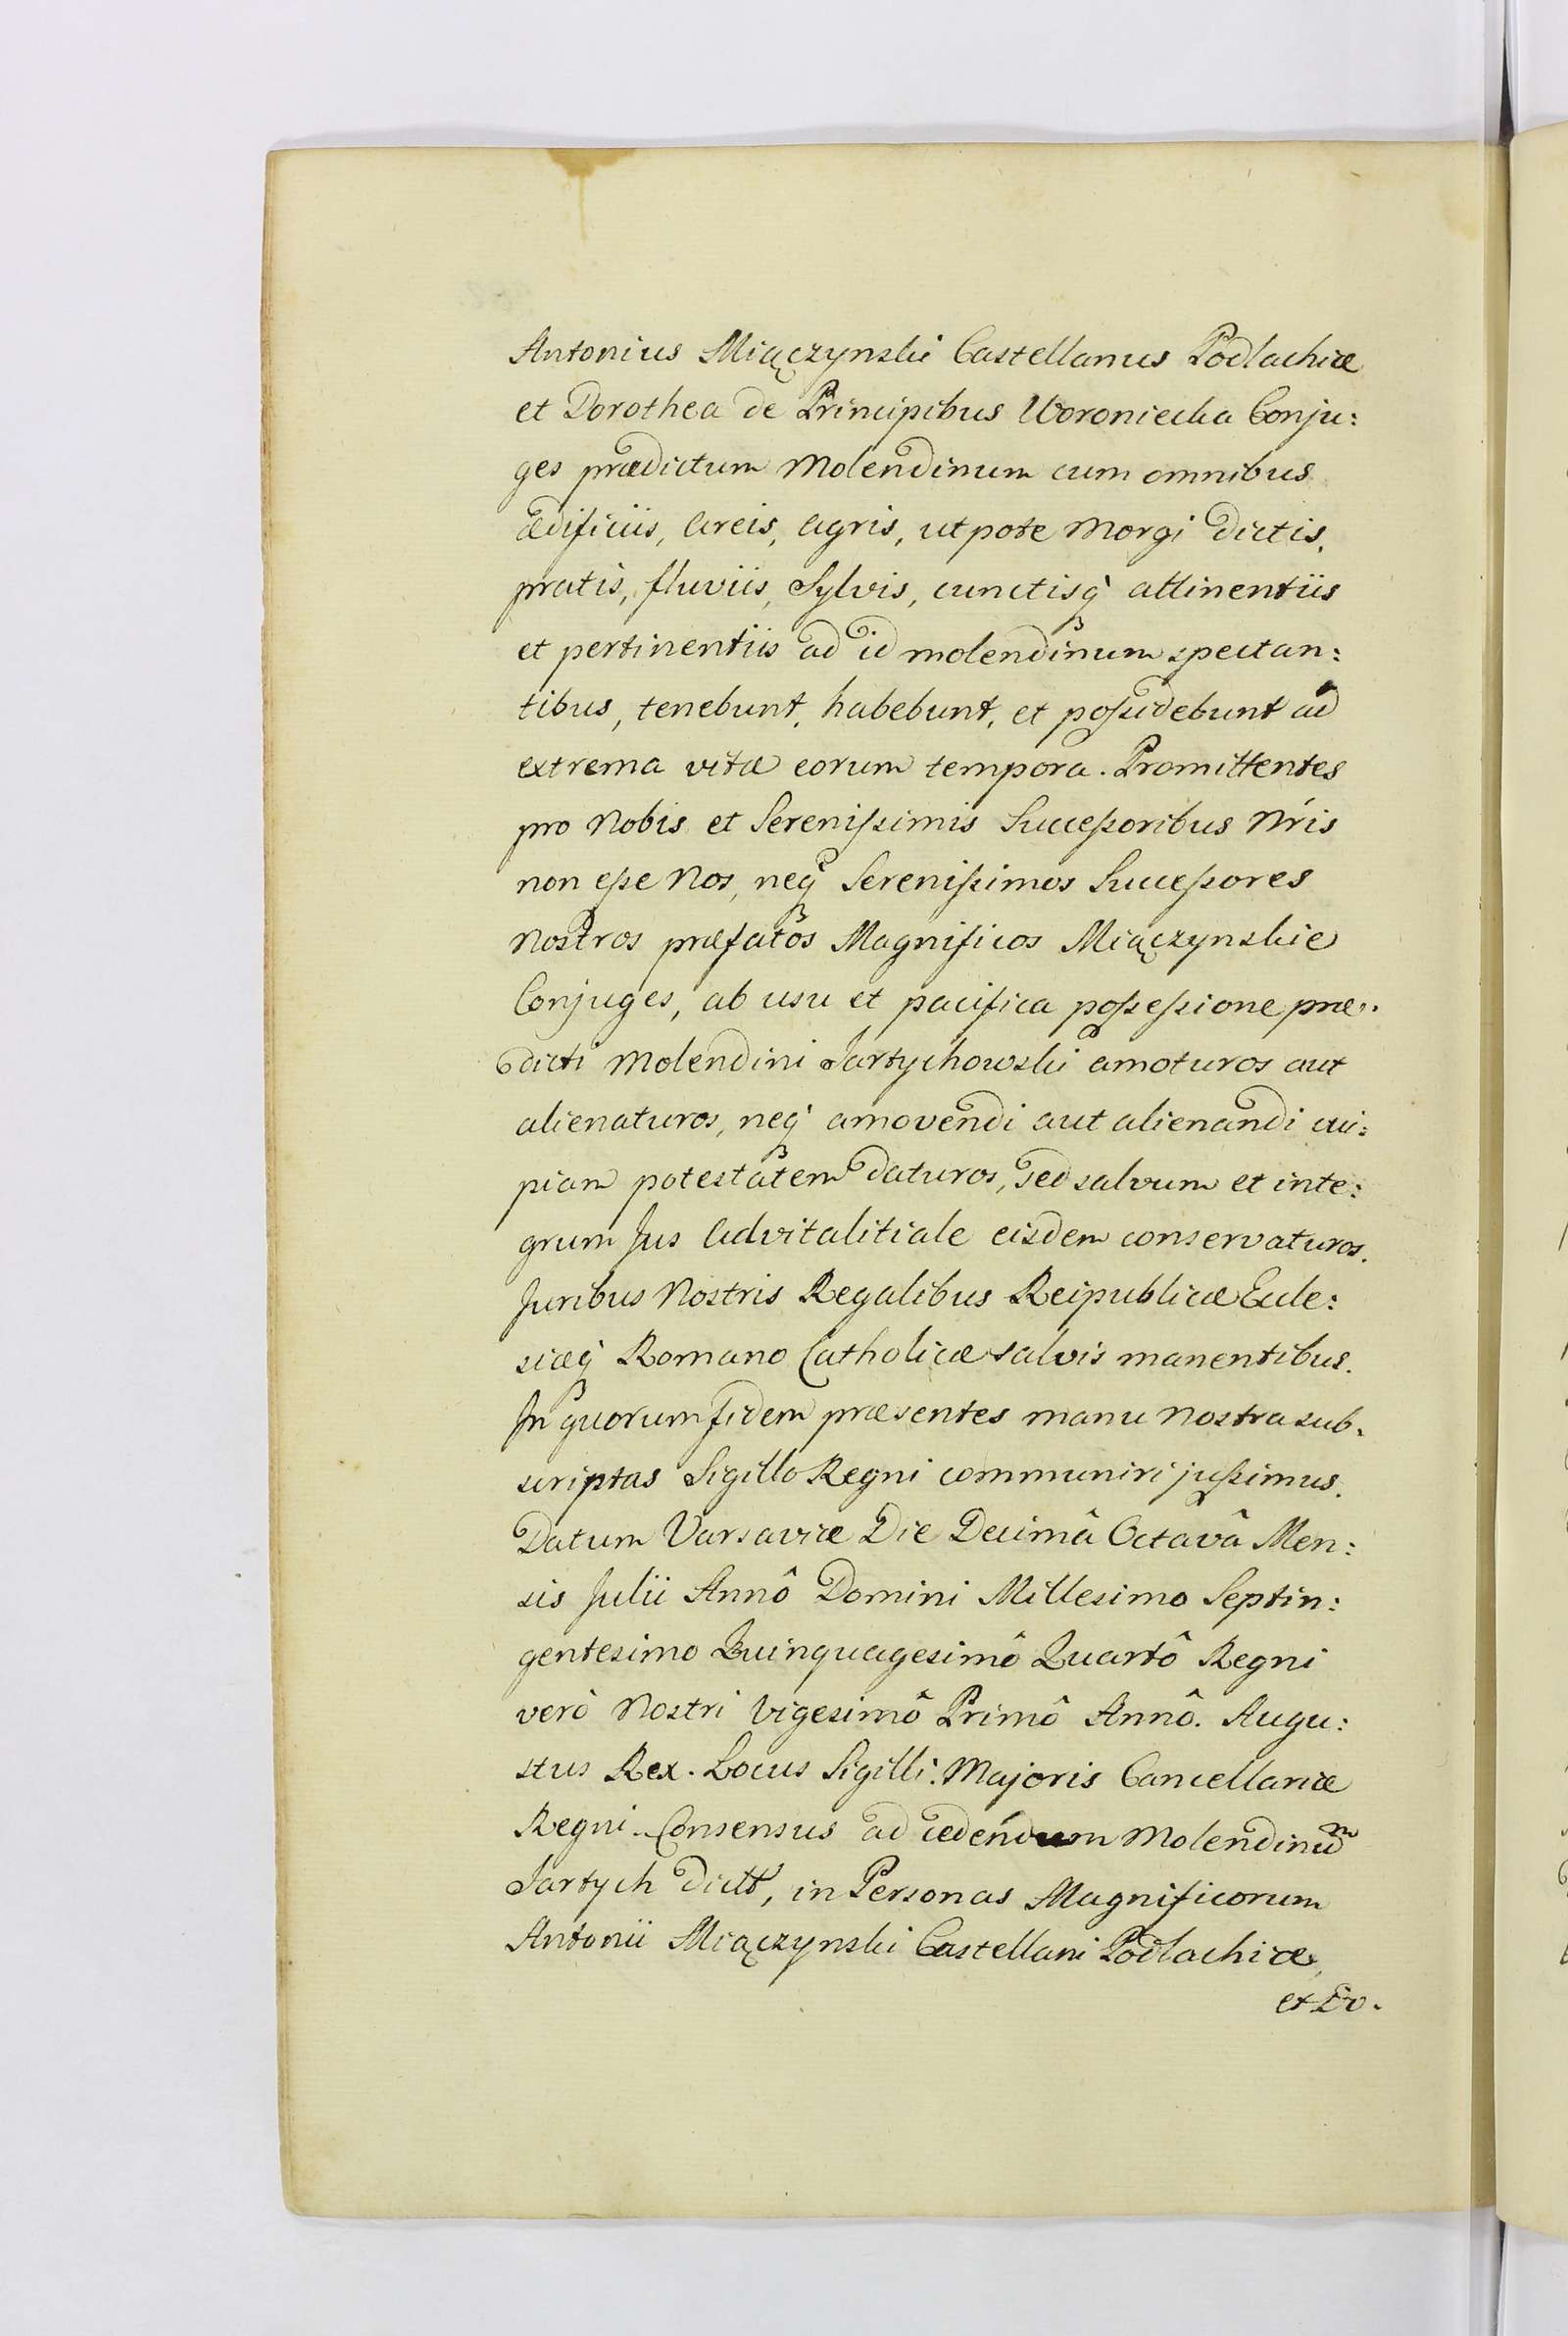 Antonius Miączynski Castellanus Podlachiæ
et Dorothea de Principibus Woroniecka Conju:
ges prædictum Molendinum cum omnibus
ædificiis, Areis, Agris, utpote Morgi dictis,
pratis, fluviis, Sylvis, cunctisq̀ attinentiis
et pertinentiis ad id molendinum spectan:
tibus, tenebunt, habebunt, et poſsidebunt ad
extrema vitæ eorum tempora. Promittentes
pro Nobis et Sereniſsimis Succeſsoribus Nŕis
non eſse Nos, neq̀ Sereniſsimos Succeſsores
Nostros præfatos Magnificos Miączynskie
Conjuges, ab usu et pacifica poſseſsione præ:
dicti Molendini Jartychowski amoturos aut
alienaturos, neq̀ amovendi aut alienandi cui:
piam potestatem daturos, sed salvum et inte:
grum Jus Advitalitiale eisdem conservaturos.
Juribus Nostris Regalibus Reipublicæ Eccle:
siæq̀ Romano Catholicæ salvis manentibus.
In quorum fidem præsentes manu Nostra sub.
scriptas Sigillo Regni communiri juſsimus.
Datum Varsaviæ Die Decimâ Octavâ Men:
sis Julii Annô Domini Millesimo Septin:
gentesimo Quinquagesimô Quartô Regni
verò Nostri Vigesimô Primô Annô. Augu:
stus Rex. Locus Sigilli. Majoris Cancellariæ
Regni. Consensus ad cedendum Molendinum
Jartych dictt, in Personas Magnificorum
Antonii Miączynski Castellani Podlachiæ,
et Do.